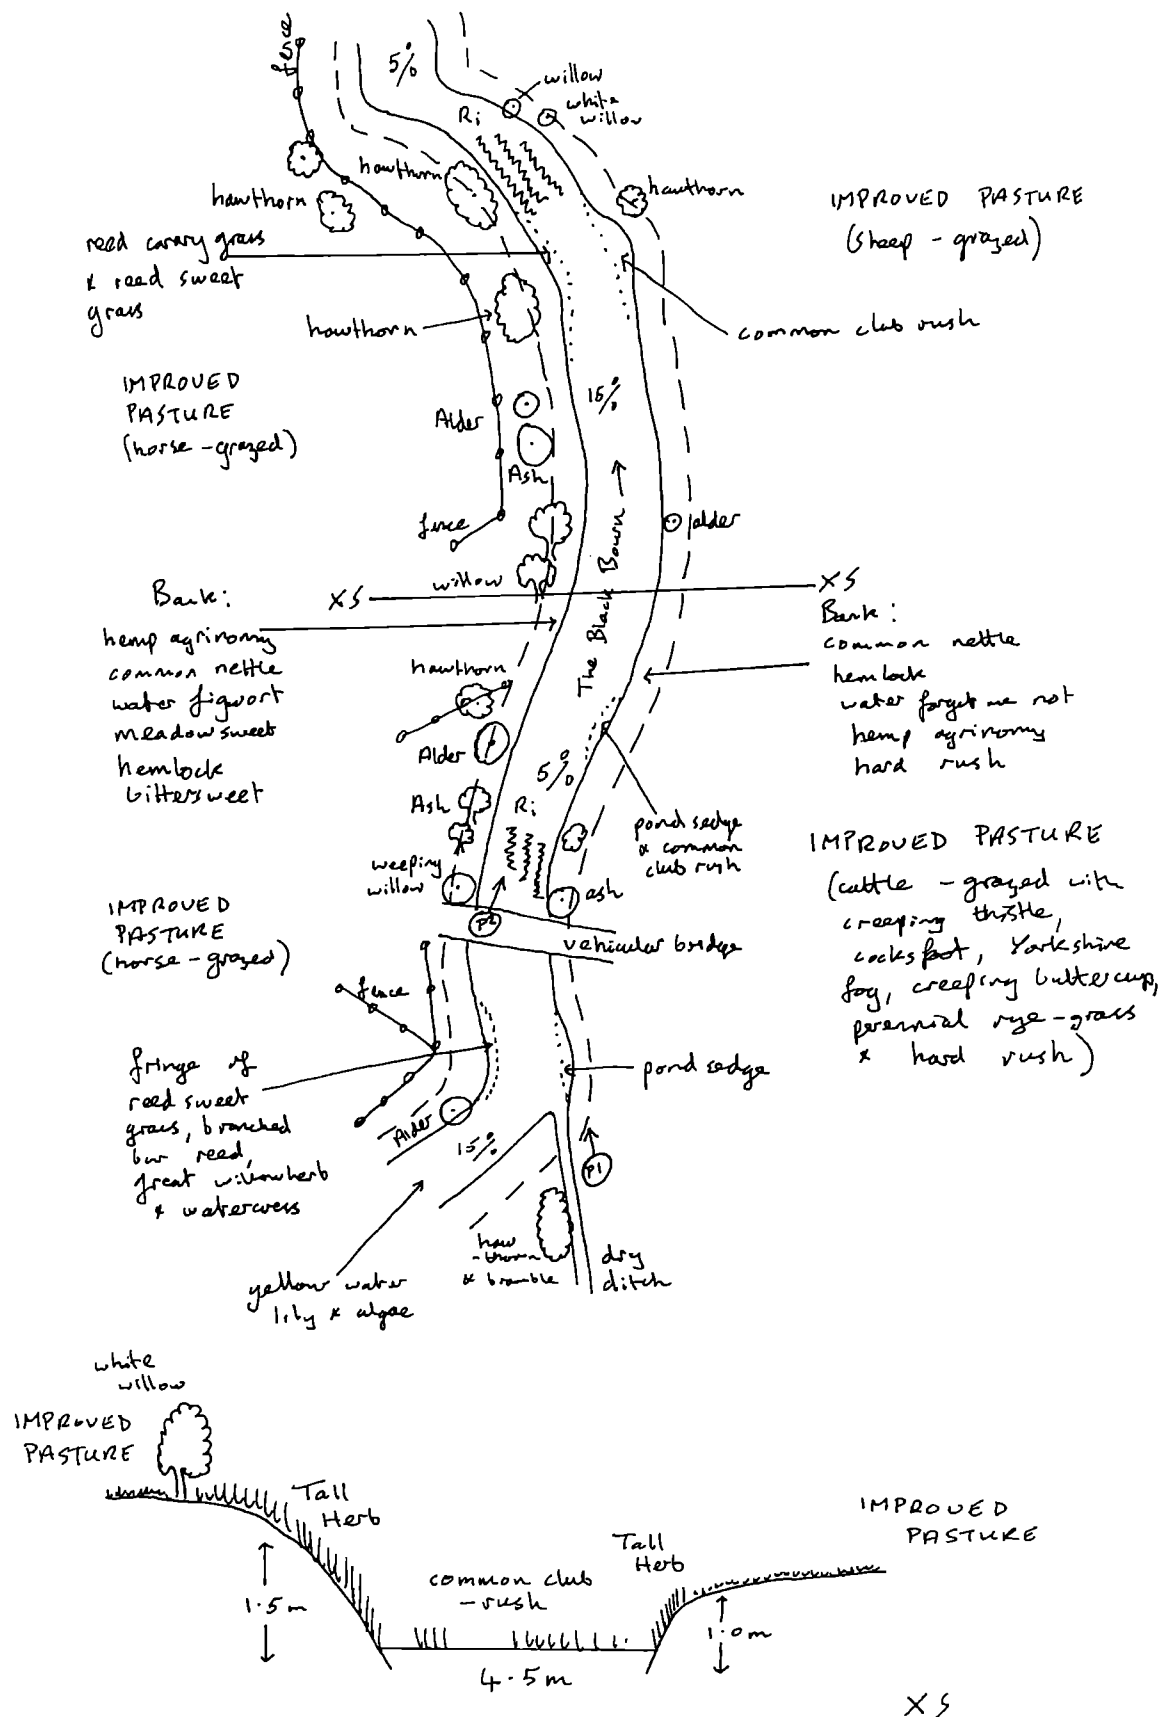 fence
5%
willow
white
willow
Ri
hawthorn
hawthorn
hawthorn
IMPROVED PASTURE
(sheep - grazed)
reed canary grass
& reed sweet
grass
hawthorn
common club rush
IMPROVED
PASTURE
(horse - grazed)
15%
Alder
Ash
fence
alder
The Black Bourn
willow
XS
XS
Bank:
hemp agrimony
common nettle
water figwort
meadowsweet
hemlock
bittersweet
Bank:
common nettle
hemlock
water forget me not
hemp agrimony
hard rush
hawthorn
Alder
5%
Ash
Ri
pond sedge
& common
club rush
weeping
willow
ash
IMPROVED PASTURE
(cattle - grazed with
creeping thistle,
cocksfoot, Yorkshire
fog, creeping buttercup,
perennial rye-grass
& hard rush)
IMPROVED
PASTURE
(horse - grazed)
P2
vehicular bridge
fence
fringe of
reed sweet
grass, branched
bur reed,
great willowherb
& watercress
pond sedge
Alder
15%
P1
haw
-thorn
& bramble
dry
ditch
yellow water
lily & algae
white
willow
IMPROVED
PASTURE
Tall
Herb
1.5m
common club
-rush
4.5m
Tall
Herb
1.0m
IMPROVED
PASTURE
XS